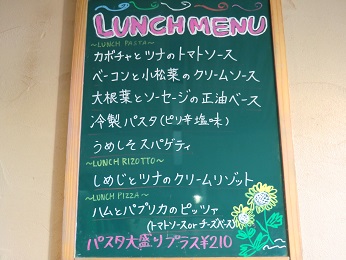 LUNCH MENU
～LUNCH PASTA～
カボチャとツナのトマトソース
ベーコンと小松菜のクリームソース
大根葉とソーセージの正油ベース
冷製パスタ(ピリ辛塩味)
うめしそスパゲティ
～LUNCH RIZOTTO～
しめじとツナのクリームリゾット
～LUNCH PIZZA～
ハムとパプリカのピッツァ
(トマトソースorチーズベース)
パスタ大盛りプラス¥210